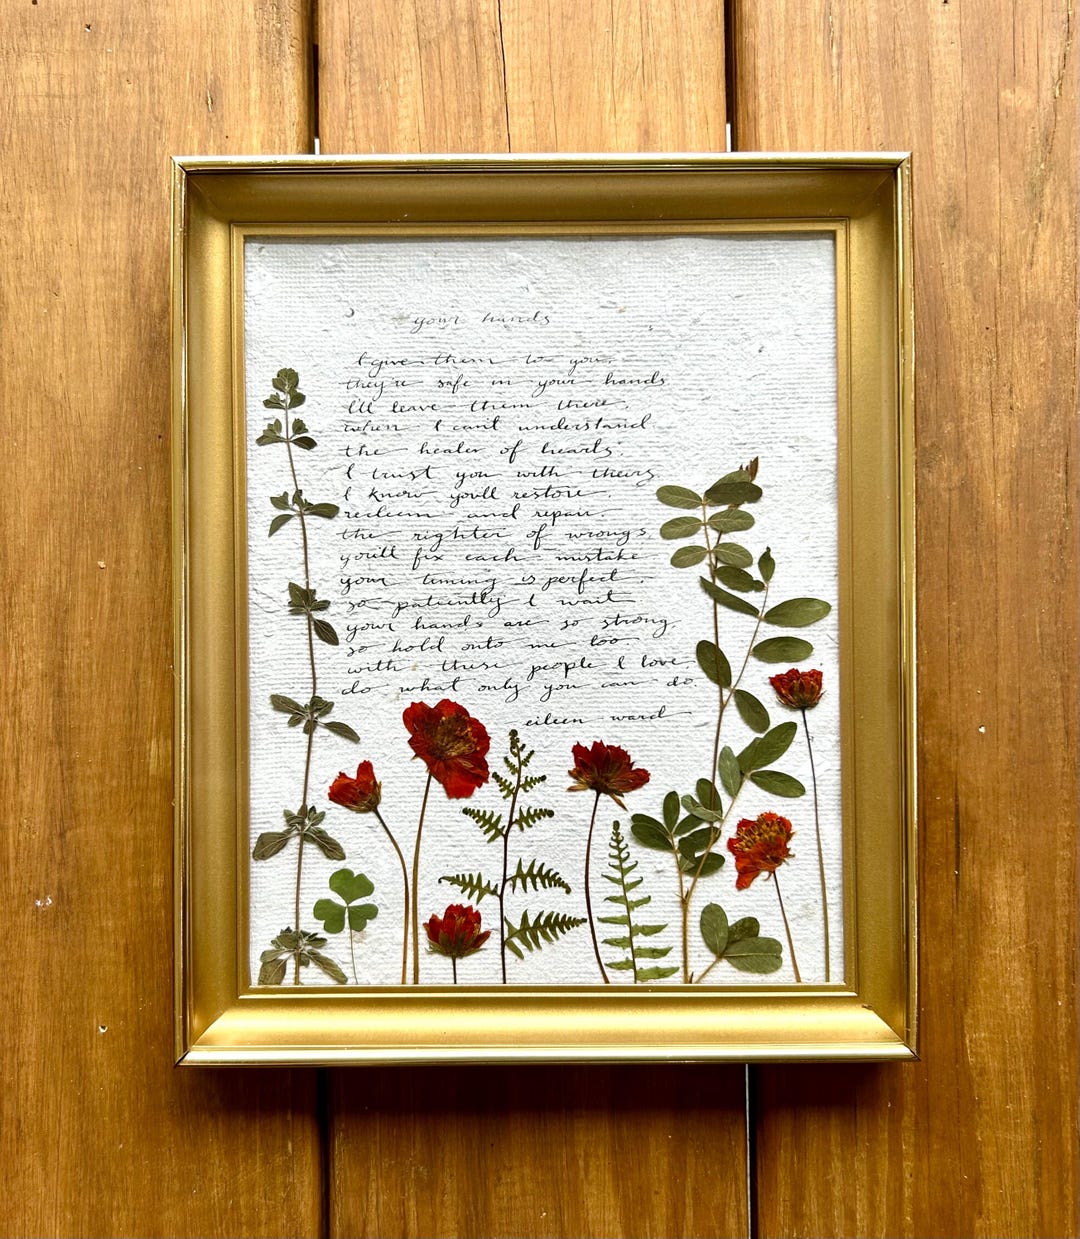 your hands
I give them to you.
they're safe in your hands
I'll leave them there,
when I can't understand
the healer of hearts,
I trust you with theirs
I know you'll restore,
redeem and repair.
the righter of wrongs,
you'll fix each mistake
your timing is perfect,
so patiently I wait
your hands are so strong,
so hold onto me too
with these people I love,
do what only you can do.
eileen ward